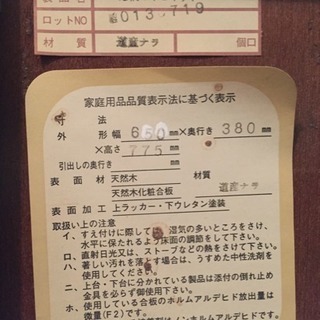 ロットNO 013 719
材質 道産ナラ 個口
家庭用品品質表示法に基づく表示
寸法
外形 幅 650 mm×奥行き 380 mm
×高さ 775 mm
引出しの奥行き mm
表面材 天然木 材質
天然木化粧合板 道産ナラ
表面加工 上ラッカー・下ウレタン塗装
取扱い上の注意
イ、すえ付けに際して 湿気の多いところをさけ、
水平に保たれるよう床面の調節をして下さい。
ロ、直射日光又は、ストーブなどの熱をさけて下さい。
ハ、著しい汚れを落す場合は、うすめた中性洗剤を
使用してください。
ニ、上台・下台に分かれている製品は添付の倒れ止め
金具を必らず御使用下さい。
ホ、使用している合板のホルムアルデヒド放出量は
微量(F2)です。
ホルムアルデヒドです。